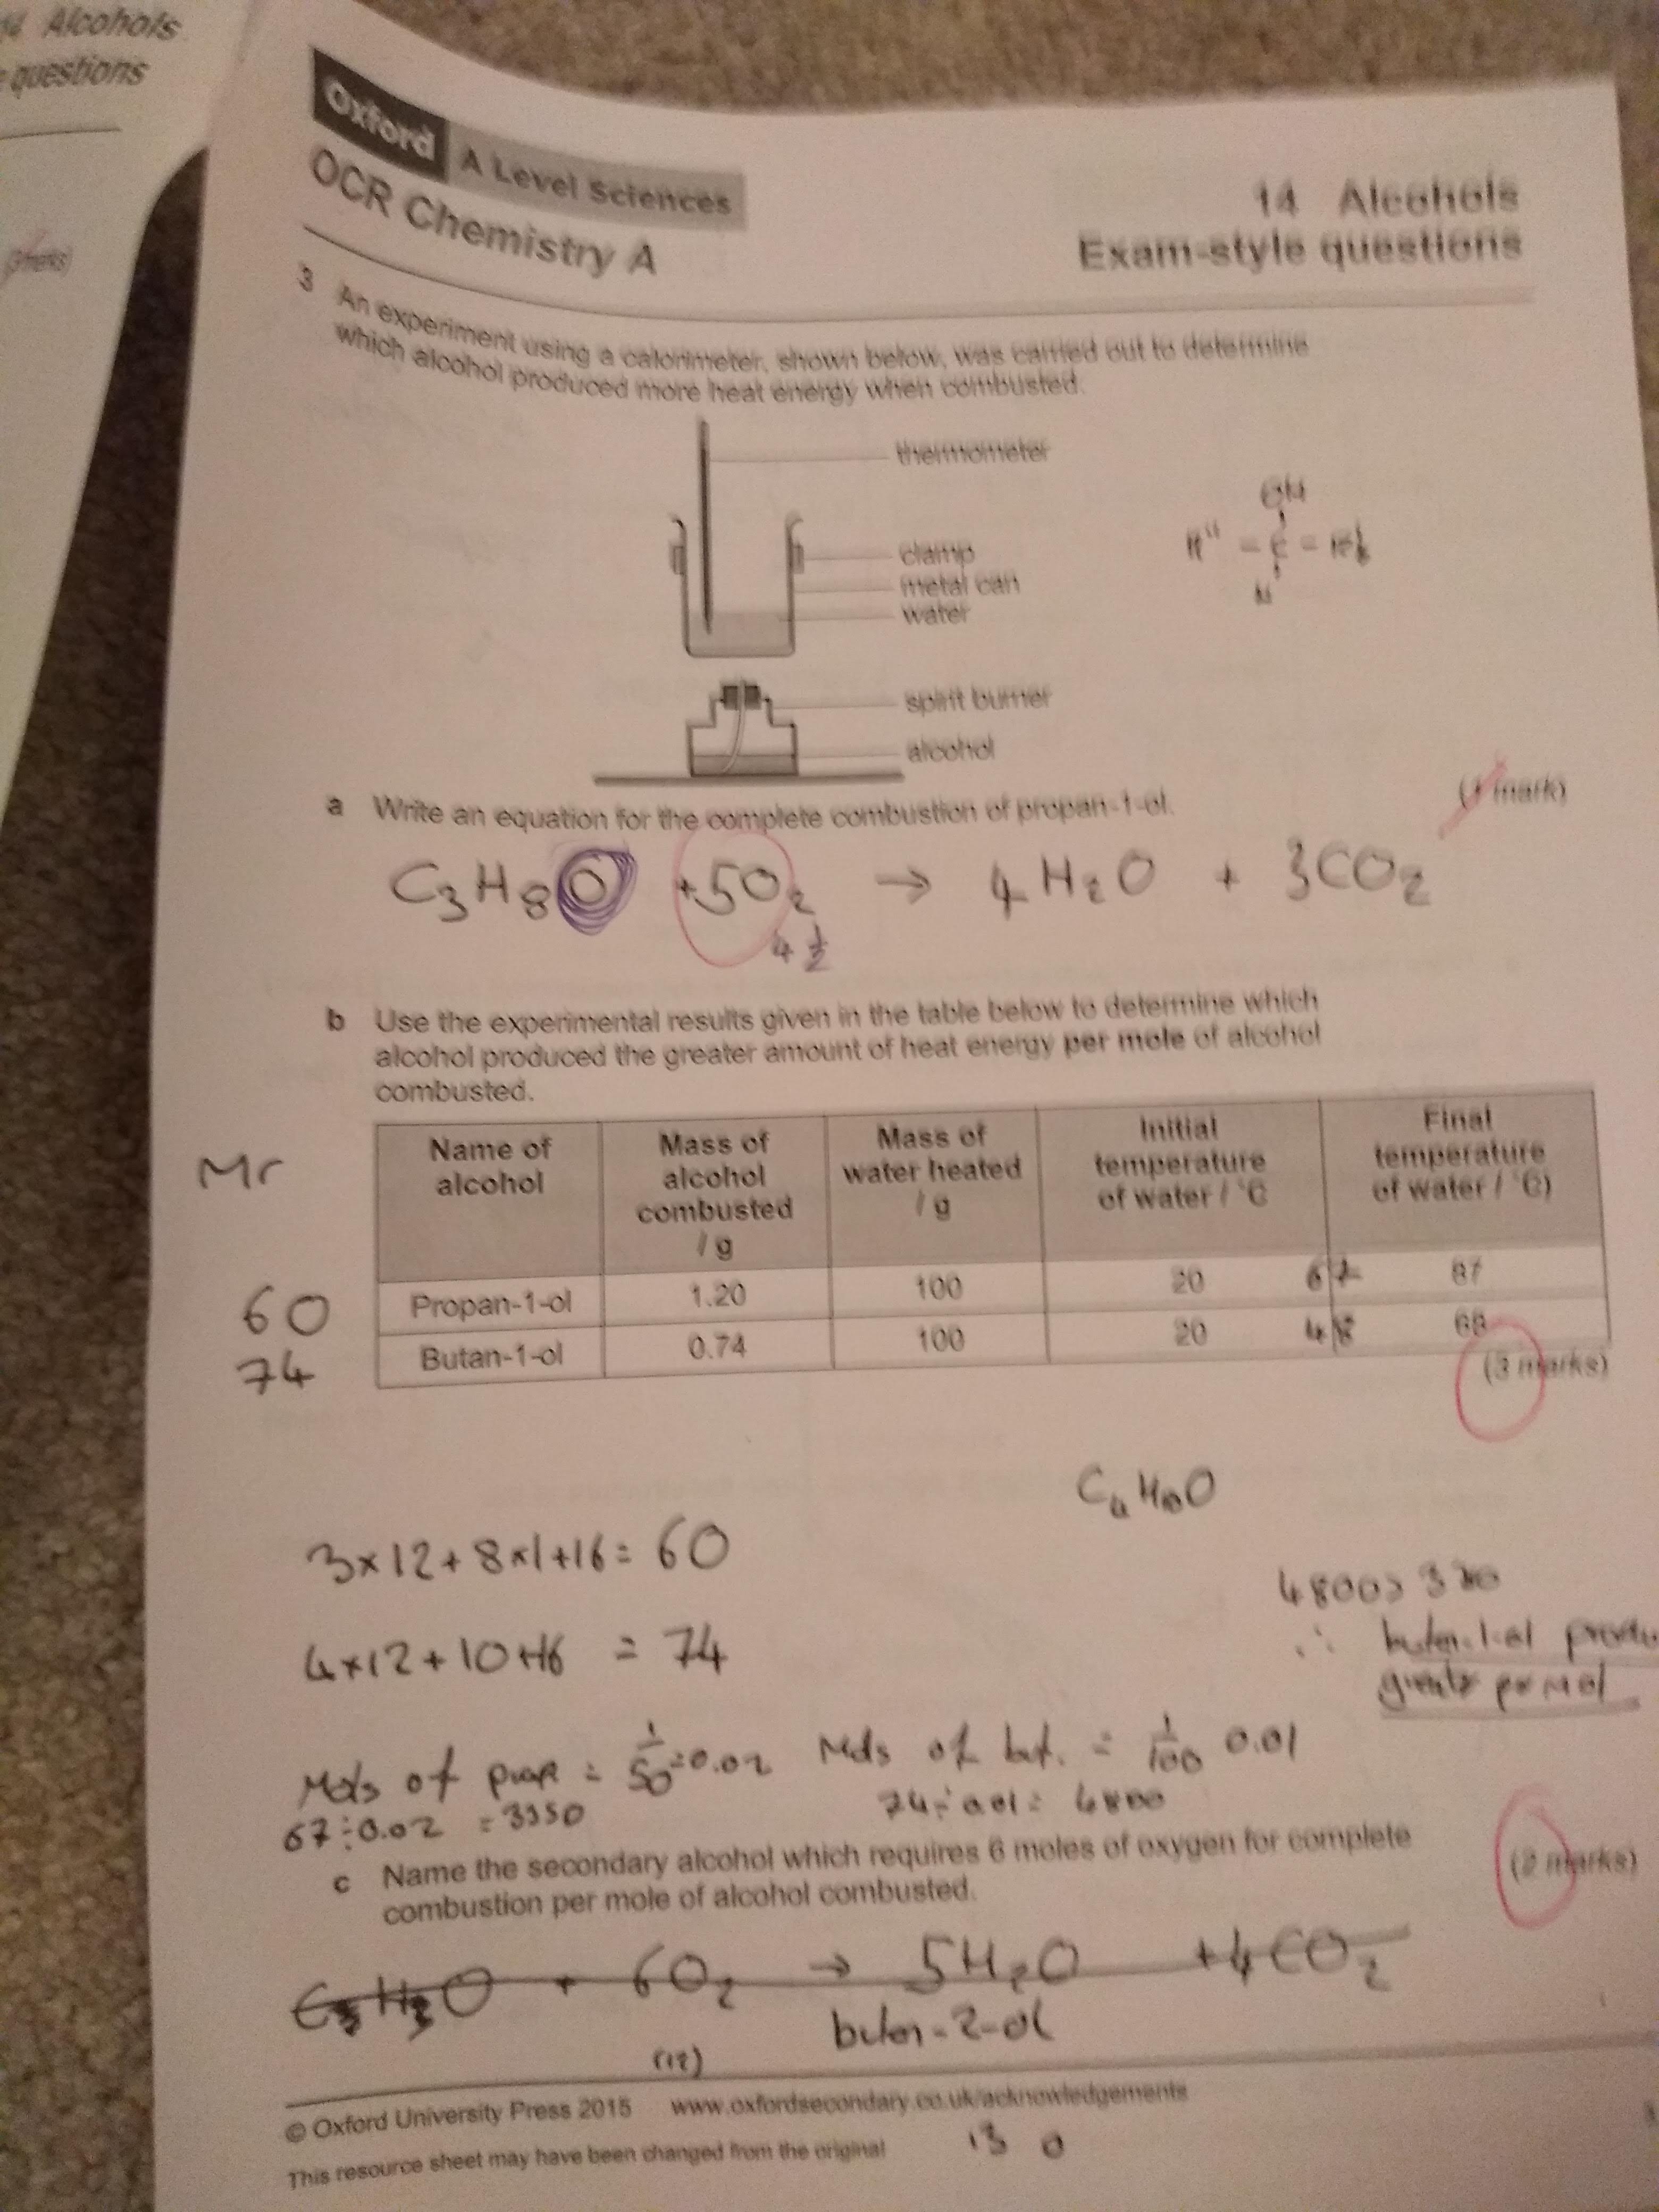 14 Alcohols
questions
Oxford A Level Sciences
OCR Chemistry A
14 Alcohols
Exam-style questions
3 An experiment using a calorimeter, shown below, was carried out to determine
which alcohol produced more heat energy when combusted.
thermometer
clamp
metal can
water
spirit burner
alcohol
OH
a Write an equation for the complete combustion of propan-1-ol. (1 mark)
C3H8O +5O2 → 4H2O + 3CO2
4 1/2
b Use the experimental results given in the table below to determine which
alcohol produced the greater amount of heat energy per mole of alcohol
combusted.
Mr
Name of alcohol Mass of alcohol combusted / g Mass of water heated / g Initial temperature of water / °C Final temperature of water / °C)
60 Propan-1-ol 1.20 100 20 67 87
74 Butan-1-ol 0.74 100 20 48 68
(3 marks)
C4H10O
3×12+8×1+16= 60
4×12+10+16 = 74
4800>
∴ butan-1-ol produ
greater per mol
Mols of prop = 1/50 =0.02 Mols of but. = 1/100 0.01
67÷0.02 =3350 74÷0.01= 4800
c Name the secondary alcohol which requires 6 moles of oxygen for complete
combustion per mole of alcohol combusted. (2 marks)
+ 6O2 → 5H2O +4CO2
butan-2-ol
(12)
© Oxford University Press 2015 www.oxfordsecondary.co.uk/acknowledgements
This resource sheet may have been changed from the original
13 0